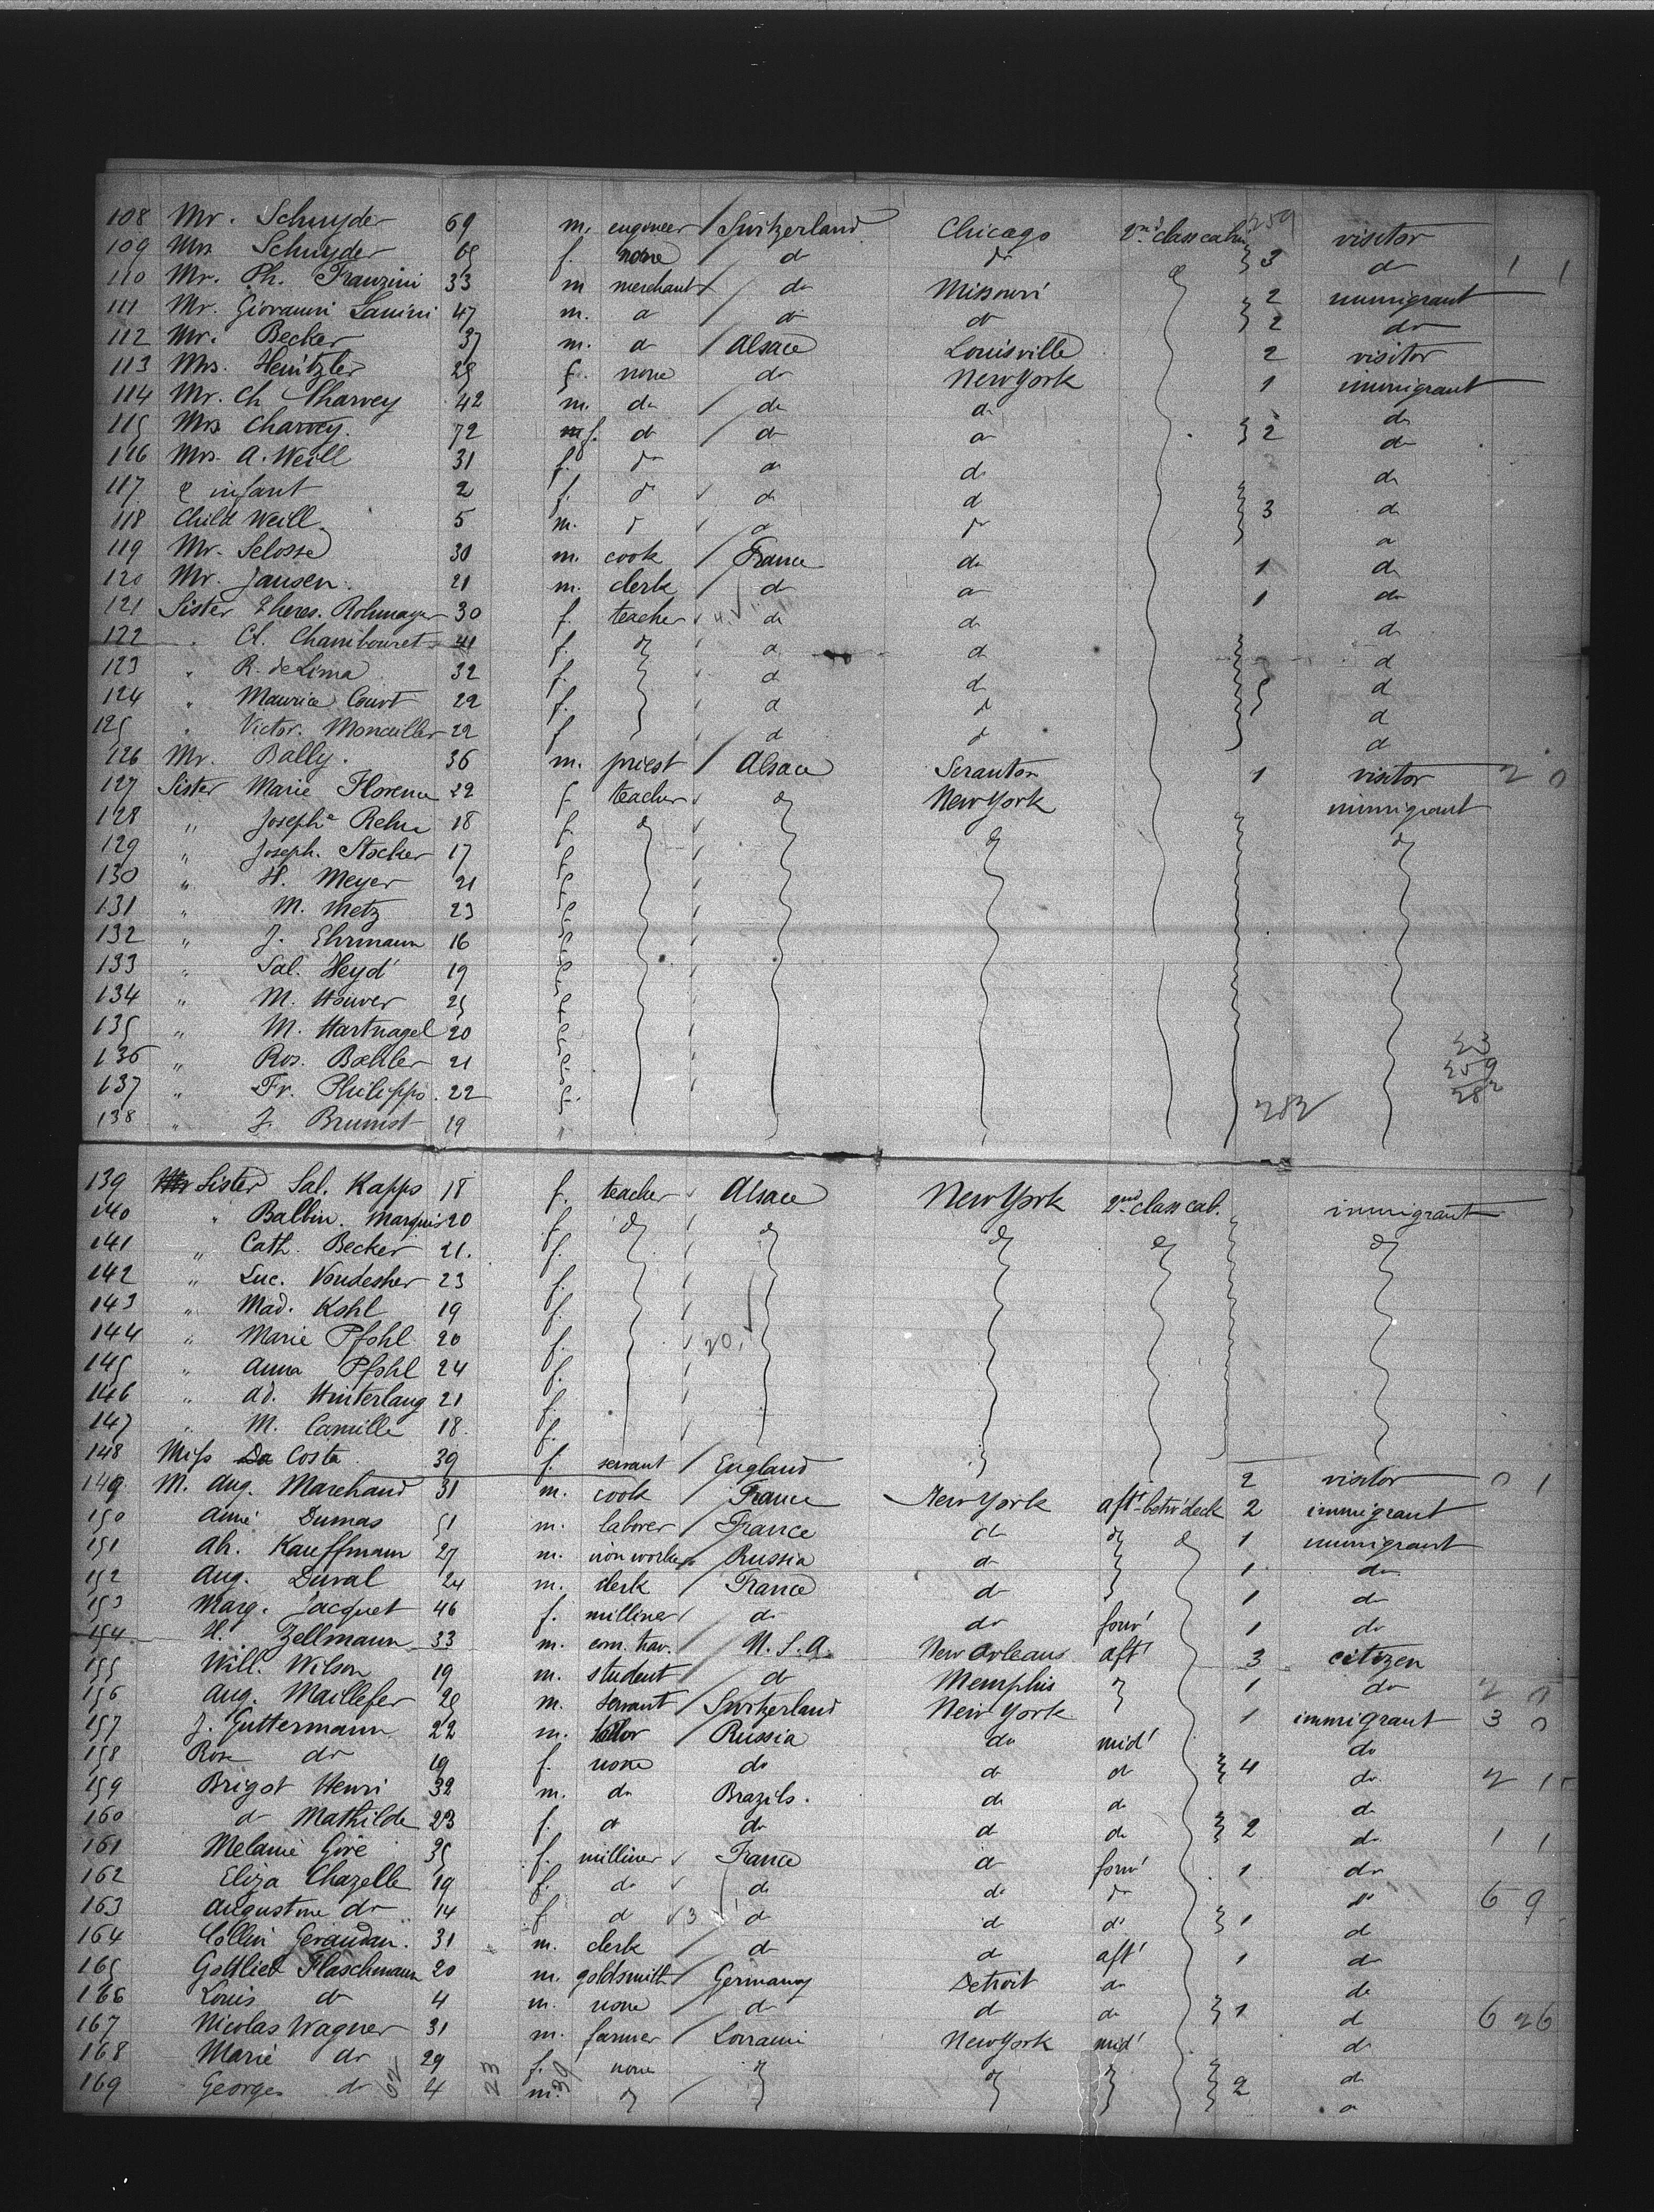 108 Mr. Schnyder 69 m. engineer / Switzerland Chicago 2nd class cabin 259 visitor
109 Mrs Schnyder 65 f. none / do do 3 do 1 1
110 Mr. Ph. Franzini 33 m merchant / do Missouri 2 immigrant
111 Mr. Giovanni Lanini 47 m. do do do 2 do
112 Mr. Becker 37 m. do / Alsace Louisville 2 visitor
113 Mrs. Heintzler 25 f. none / do New York 1 immigrant
114 Mr. Ch Charvey 42 m. do / do do do
115 Mrs Charvey. 72 f. do / do do 2 do
116 Mrs. A. Weill 31 f. do do do do
117 & infant 2 f. do do do 3 do
118 Child Weill 5 m. do do do do
119 Mr. Selosse 30 m. cook / France do 1 do
120 Mr. Jansen. 21 m. clerk / do do 1 do
121 Sister Theres. Rohmayer 30 f. teacher do do do
122 " Cl. Chambouret 41 f. do do do do
123 " R. de Lima 32 f. do do do
124 " Maurice Court 22 f. do do 5 do
125 " Victor. Monceiller 22 f do do do
126 Mr. Bally. 36 m. priest / Alsace Scranton 1 visitor 2 0
127 Sister Marie Florence 22 f teacher do New York immigrant
128 " Josephe Rehm 18 f. do do do
129 " Joseph. Stocker 17 f
130 " H. Meyer 21 f
131 " M. Metz 23 f
132 " J. Ehrmann 16 f
133 " Sal. Heyd 19 f
134 " M. Houver 25 f
135 " M. Hartnagel 20 f
136 " Ros. Boehler 21 f 23
137 " Fr. Philipps. 22 f. 259
138 " J. Brumst 19 " 282 282
139 Sister Sal. Kapps 18 f. teacher Alsace New York 2nd class cab. immigrant
140 " Balbin. Marquis 20 f. do do do do do
141 " Cath. Becker 21. f.
142 " Luc. Vondesher 23 f.
143 " Mad. Kohl 19 f.
144 " Marie Pfohl 20 f. 20.
145 " Anna Pfohl 24 f.
146 " Ad. Hinterlang 21 f.
147 " M. Camille 18. f.
148 Miss Da Costa 39 f. servant / England 2 visitor 0 1
149 M. Aug. Marchand 31 m. cook / France New York aft-betw'deck 2 immigrant
150 Aimé Dumas 51 m. laborer / France do do do 1 immigrant
151 Ab. Kauffmann 27 m. iron worker / Russia do 1 do
152 Aug. Duval 24 m. clerk / France do 1 do
153 Marg. Jacquet 46 f. milliner / do do forw' 1 do
154 H. Zellmann 33 m. com. trav. / U. S. A. New Orleans aft' 3 citizen
155 Will. Wilson 19 m. student / do Memphis do 1 do
156 Aug. Maillefer 25 m. servant / Switzerland New York 1 immigrant 3 0
157 J. Guttermann 22 m. / Russia do mid' do
158 Rosa do 19 f. none / do do do 4 do
159 Brigot Henri 32 m. do Brazils. do do do
160 do Mathilde 23 f. do do do do 2 do 1 1
161 Melanie Giré 35 f. milliner France do forw' 1 do
162 Eliza Chazelle 19 f. do do do do do 6 9
163 Augustine do 14 f do 3 do do do 1 do
164 Collin Geraudan. 31 m. clerk / do do aft' 1 do
165 Gottlieb Flaschmann 20 m. goldsmith / Germany Detroit do do
166 Louis do 4 m. none / do do do 1 do 6 26
167 Nicolas Wagner 31 m. farmer / Lorraine New York mid' do
168 Marie do 29 f. none do do do do
169 Georges do 62 4 23 m. 39 do 2 do